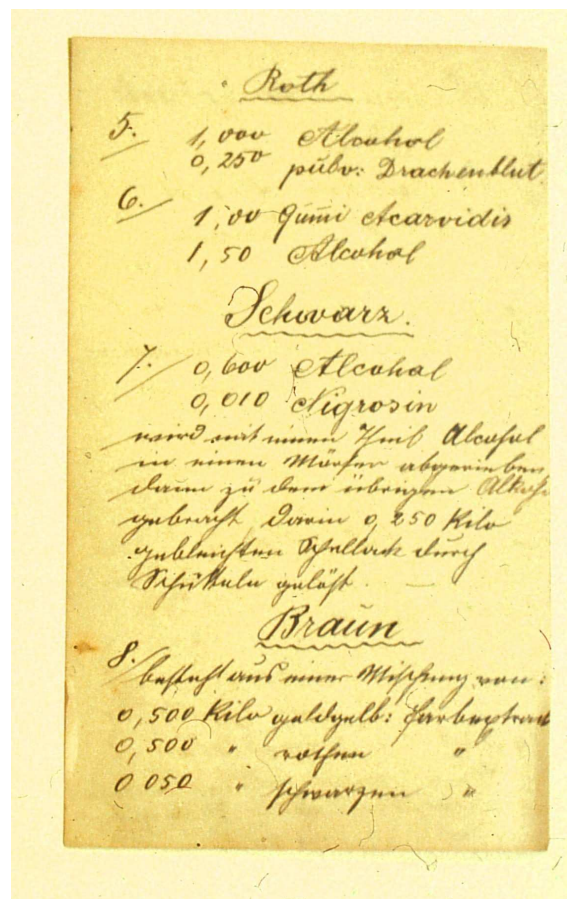 Roth
5. 1,000 Alcohol
0,250 pulv: Drachenblut
6. 1,00 Gumi Acaroidis
1,50 Alcohol
Schwarz.
7. 0,600 Alcohol
0,010 Nigrosin
wird mit einem Theil Alcohol
in einen Mörser abgerieben
dann zu dem übrigen Alkoho
gebracht, darin 0,250 Kilo
gebleichten Schellack durch
Schütteln gelöst.
Braun
8. besteht aus einer Mischung von:
0,500 Kilo goldgelb: Farbextract
0,500 " rothen "
0 050 " schwarzen "